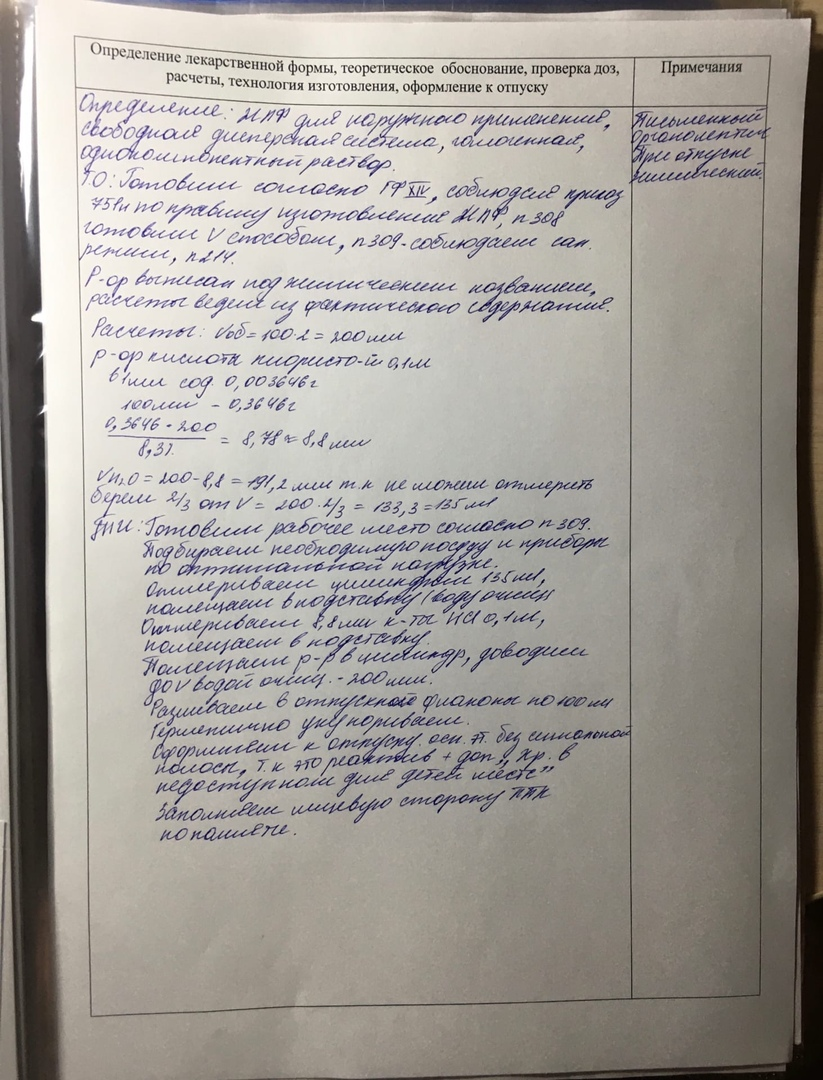 Определение лекарственной формы, теоретическое обоснование, проверка доз,
расчеты, технология изготовления, оформление к отпуску
Примечания
Определение: ЖЛФ для наружного применения,
свободная дисперсная система, гомогенная,
однокомпонентный раствор.
Т.О: Готовим согласно ГФ XIV, соблюдая приказ
751н по правилу изготовления ЖЛФ, п 308
готовим V способом, п 309 - соблюдаем сан.
режим, п 214.
Р-ор выписан под химическим названием,
расчеты ведем из фактического содержания.
Расчеты: Vоб = 100·2 = 200 мл
р-ор кислоты хлористо-й 0,1м
в 1 мл сод. 0,003646г
100мл - 0,3646г
0,3646 · 200
8,3%
= 8,78 ≈ 8,8 мл
VH2O = 200-8,8 = 191,2 мл т.к не можем отмерить
берем 2/3 от V = 200·2/3 = 133,3 = 135 мл
ТИ: Готовим рабочее место согласно п 309.
Подбираем необходимую посуду и приборы
по оптимальной нагрузке.
Отмериваем цилиндром 135 мл,
помещаем в подставку (воду очищ)
Отмериваем 8,8 мл к-ты HCl 0,1м,
помещаем в подставку.
Помещаем р-р в цилиндр, доводим
до V водой очищ. - 200мл.
Разливаем в отпускные флаконы по 100 мл
Герметично укупориваем.
Оформляем к отпуску. осн. эт. без сигнальной
полосы, т.к это реактив + доп „Хр. в
недоступном для детей месте"
Заполняем лицевую сторону ППК
по памяти.
Письменный
Органолептич
При отпуске
Химический.